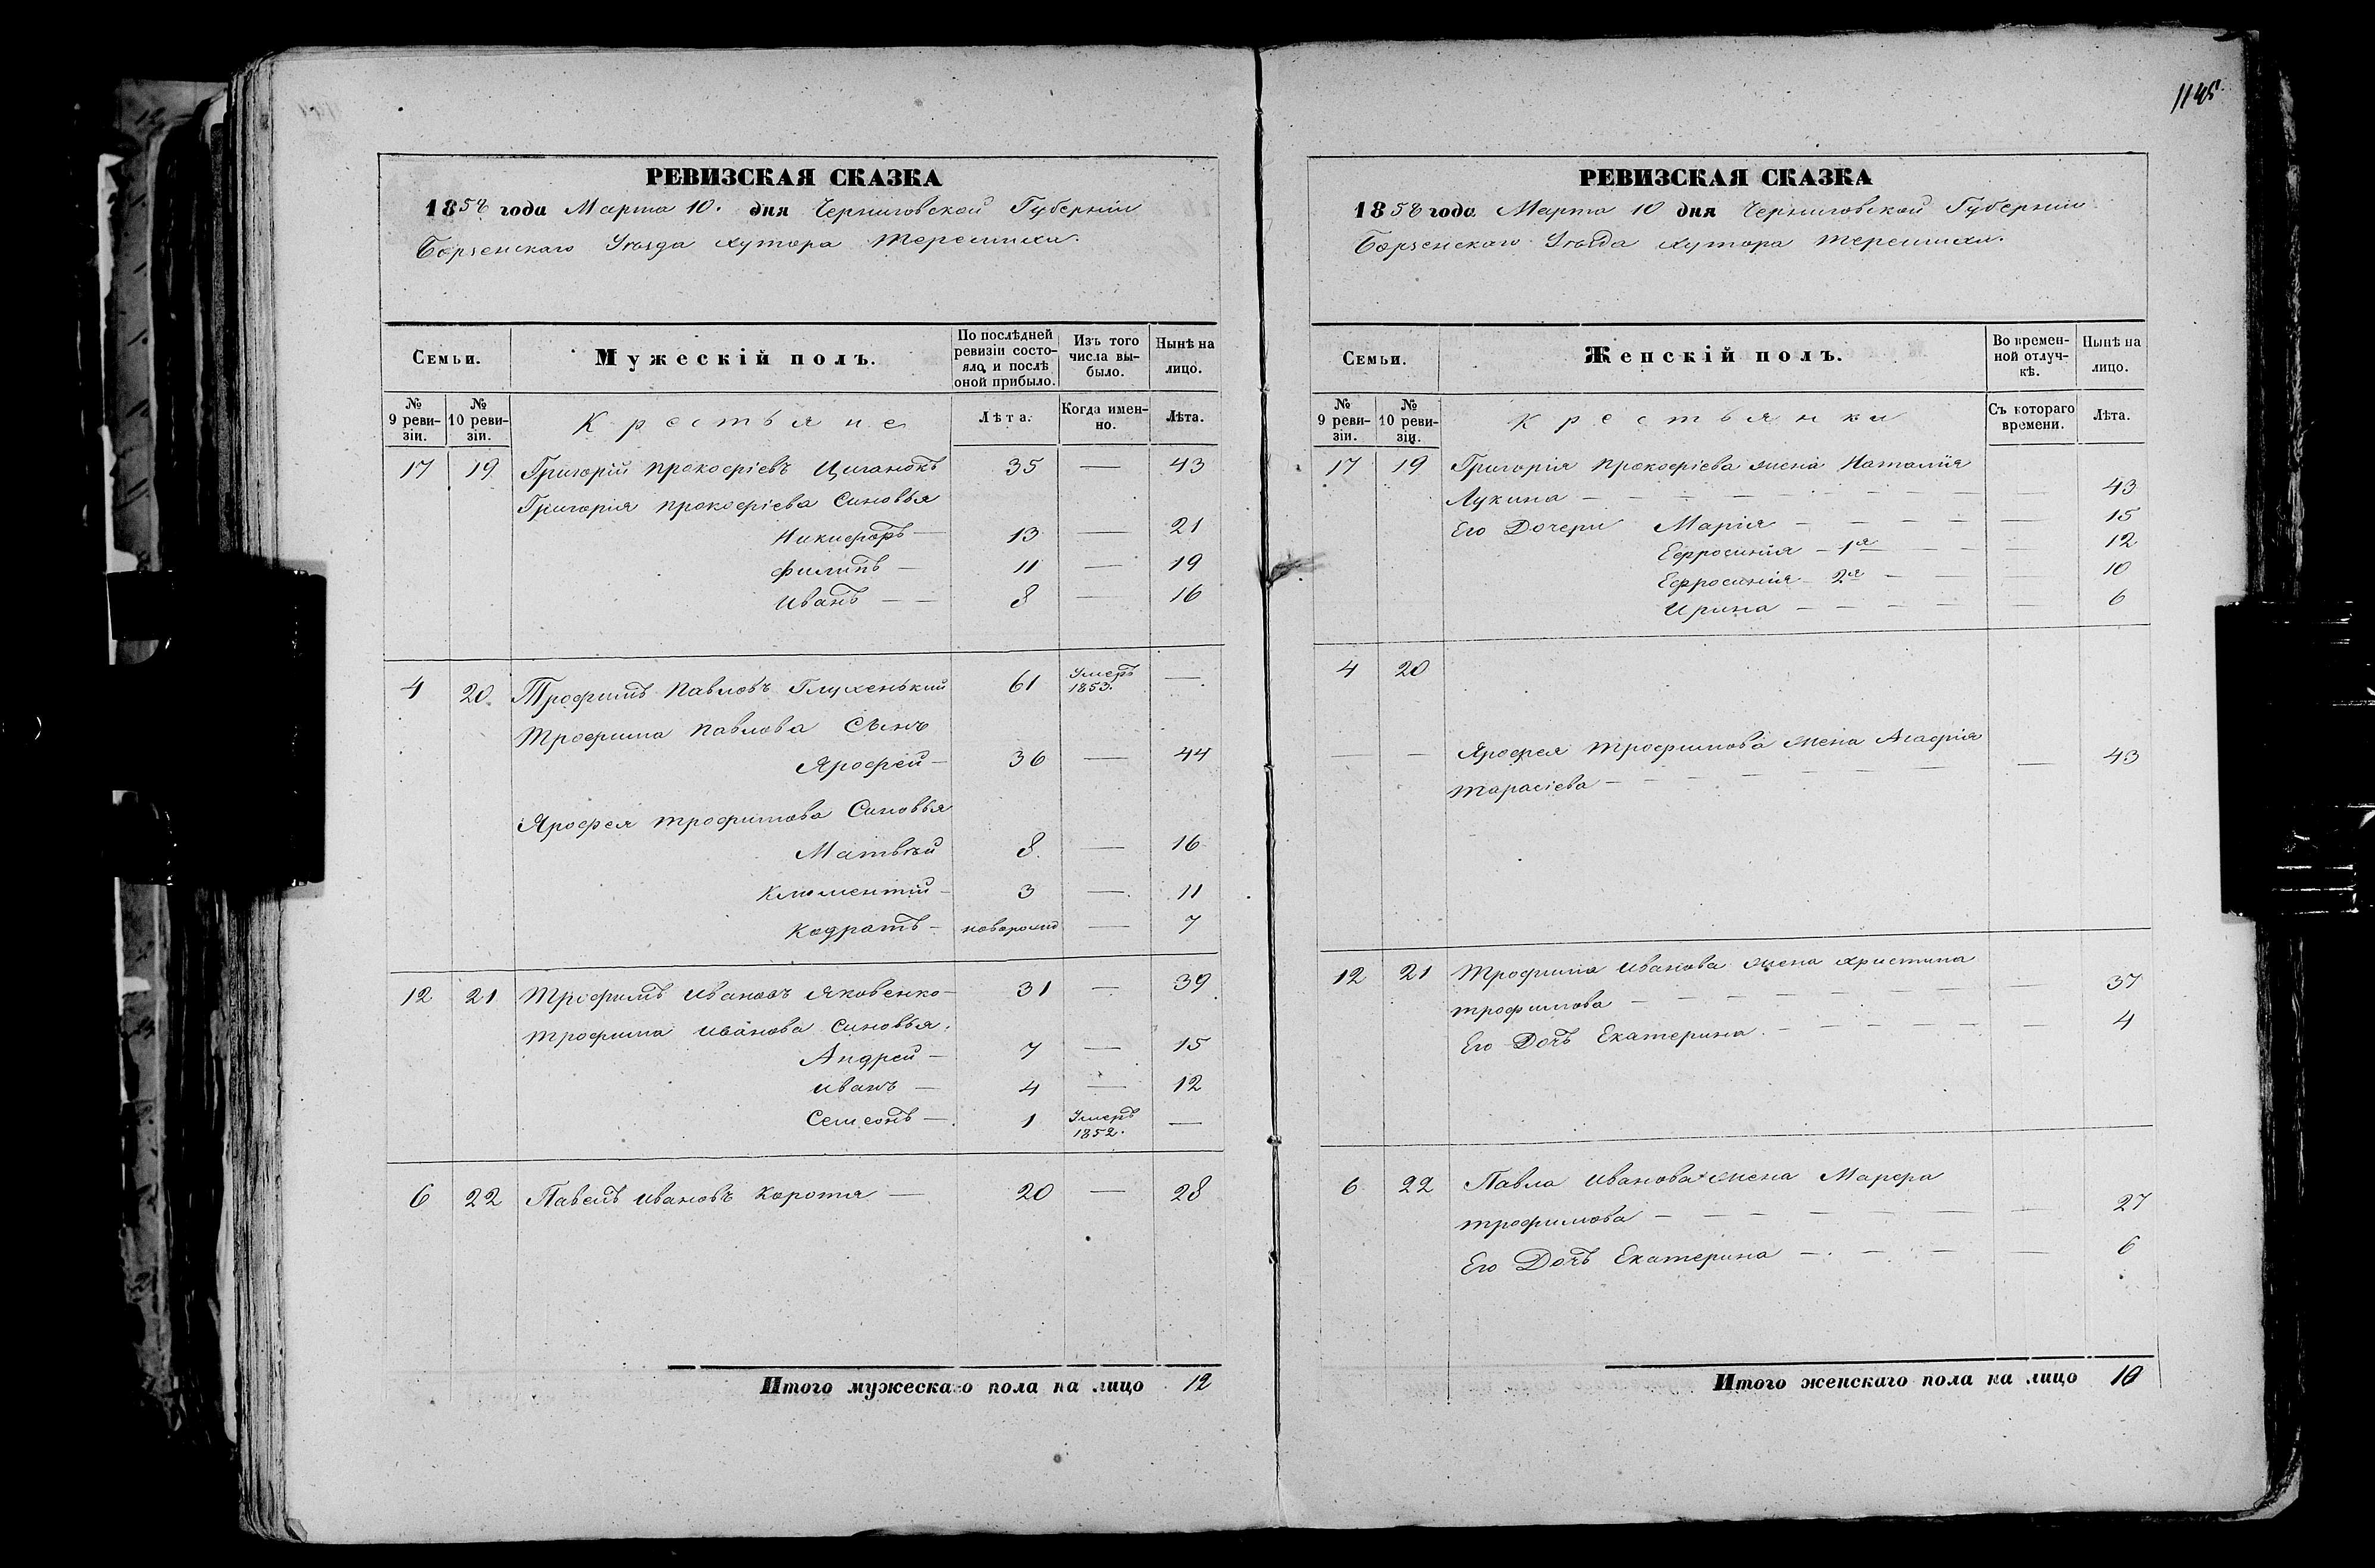 РЕВИЗСКАЯ СКАЗКА
1858 года Марта 10. дня Черниговской Губерніи
Борзенскаго Уѣзда хутора Терешихи.
Семьи.
Мужескій полъ.
По послѣдней ревизіи состояло, и послѣ оной прибыло.
Изъ того числа выбыло.
Нынѣ на лицо.
№ 9 ревизіи.
№ 10 ревизіи.
Крестьяне
Лѣта.
Когда именно.
Лѣта.
17 19 Григорій Прокофіевъ Циганокъ 35 — 43
Григорія Прокофіева Синовья
Никифоръ — 13 — 21
Филипъ — 11 — 19
Иванъ — — 8 — 16
4 20. Трофимъ Павловъ Глухенький 61 Умеръ 1853. —
Трофима Павлова Сынъ
Ярофей — 36 — 44
Ярофея Трофимова Синовья
Матвѣй 8. — 16
Климентій — 3 — 11
Кодратъ — новорожд — 7
12 21 Трофимъ Ивановъ Яковенко — 31 — 39
Трофима Иванова Синовья.
Андрей — 7 — 15
Иванъ — 4 — 12
Семіонъ — 1 Умеръ 1852. —
6 22 Павелъ Ивановъ Коротя — 20 — 28
Итого мужескаго пола на лицо 12
1145
РЕВИЗСКАЯ СКАЗКА
1858 года Марта 10 дня Черниговской Губерніи
Борзенскаго Уѣзда хутора Терешихи.
Семьи.
Женскій полъ.
Во временной отлучкѣ.
Нынѣ на лицо.
№ 9 ревизіи.
№ 10 ревизіи.
Крестьянки
Съ котораго времени.
Лѣта.
17 19 Григорія Прокофіева жена Наталия
Лукина — — — — — — — — 43
Его Дочери Марія — — — — — — 15
Ефросинія — 1я — — — — 12
Ефросинія — 2я — — — — 10
Ирина — — — — — — 6
4 20
— — Ярофея Трофимова жена Агафія
Тарасіева — — — — — — — — 43
12 21 Трофима Иванова жена Христина
Трофимова — — — — — — — — 37
Его Дочъ Екатерина. — — — — — — 4
6 22 Павла Иванова жена Марфа
Трофимова — — — — — — — — 27
Его Дочъ Екатерина — . — . — — 6
Итого женскаго пола на лицо 10